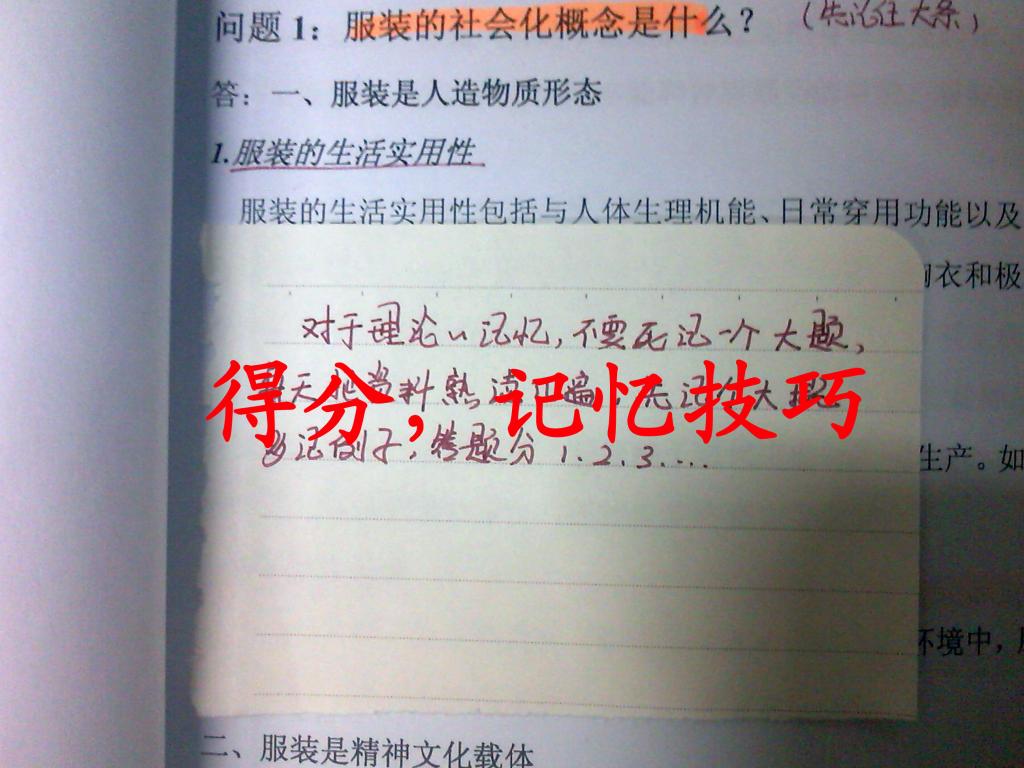 问题1：服装的社会化概念是什么？（先记住大条）
答：一、服装是人造物质形态
1.服装的生活实用性
服装的生活实用性包括与人体生理机能、日常穿用功能以及
衣和极
对于理论的记忆，不要死记一个大题，
每天把资料熟读一遍，先记住大
得分，记忆技巧
多记例子，答题分1.2.3....
生产。如
环境中，
二、服装是精神文化载体